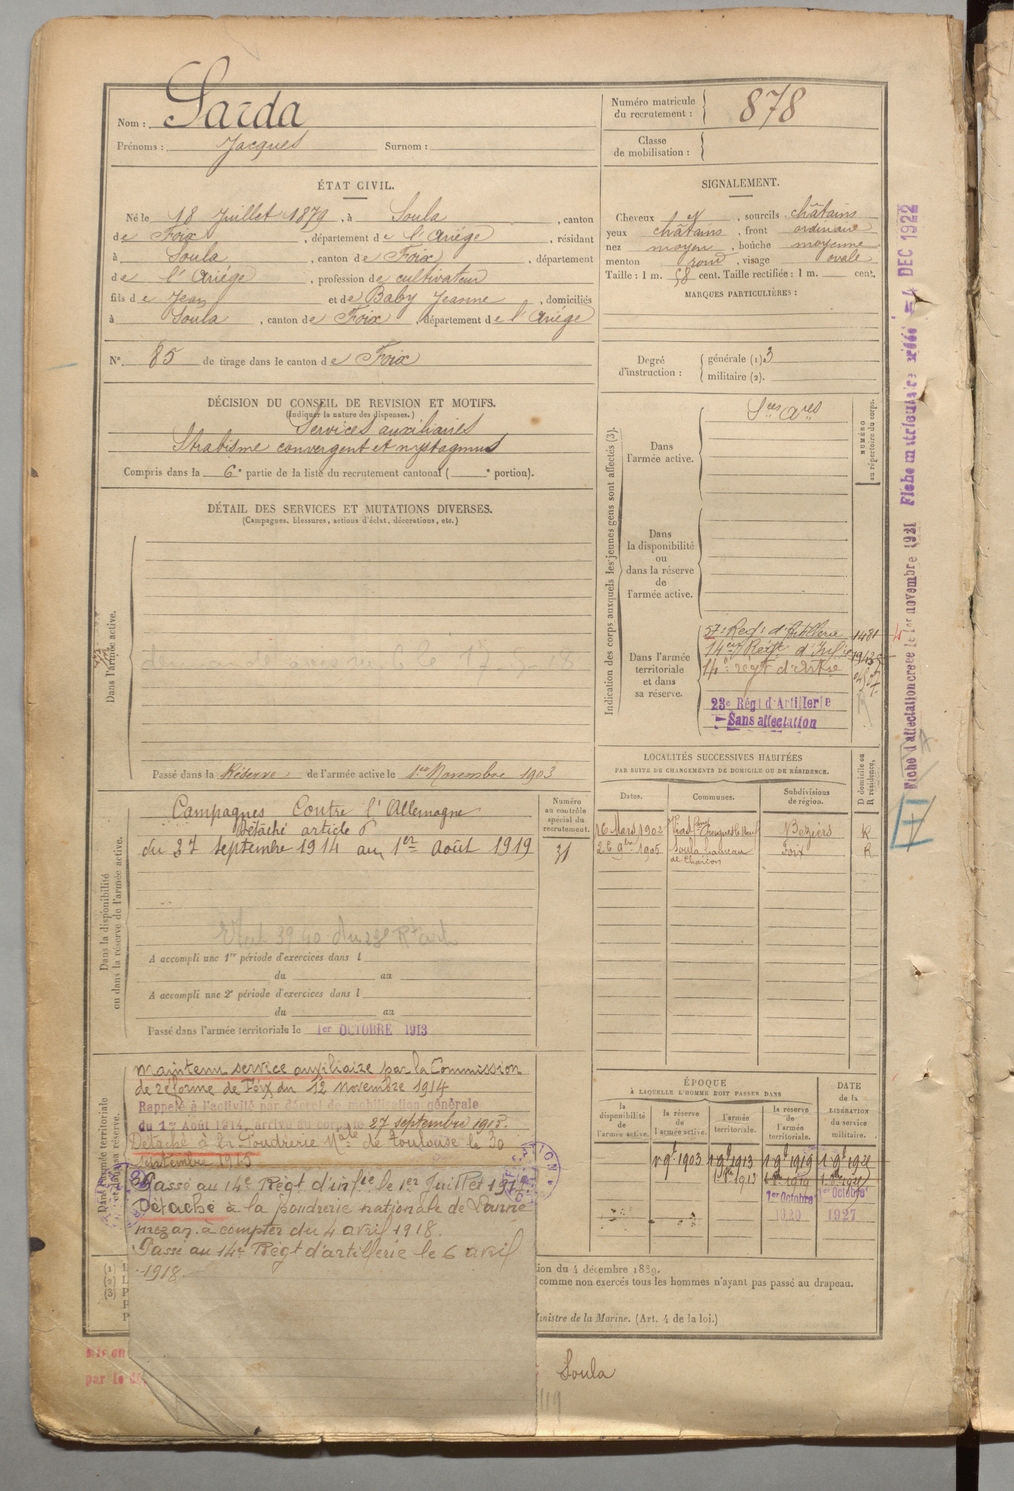 Nom : Sarda
Prénoms : Jacques Surnom :
Numéro matricule du recrutement : 878
Classe de mobilisation :
ÉTAT CIVIL.
Né le 18 Juillet 1879, à Soula, canton
de Foix, département de l'Ariége, résidant
à Soula, canton de Foix, département
de l'Ariége, profession de cultivateur
fils de Jean et de Baby Jeanne, domiciliés
à Soula, canton de Foix, département de l'Ariége
N° 85 de tirage dans le canton de Foix
SIGNALEMENT.
Cheveux et, sourcils châtains
yeux châtains, front ordinaire
nez moyen, bouche moyenne
menton rond, visage ovale
Taille : 1 m. 58 cent. Taille rectifiée : 1 m. cent.
MARQUES PARTICULIÈRES :
Degré d'instruction : générale (1) 3
militaire (2).
DÉCISION DU CONSEIL DE REVISION ET MOTIFS.
(Indiquer la nature des dispenses.)
Services auxiliaires
Strabisme convergent et nystagmus
Compris dans la 6e partie de la liste du recrutement cantonal ( e portion).
DÉTAIL DES SERVICES ET MUTATIONS DIVERSES.
(Campagnes, blessures, actions d'éclat, décorations, etc.)
Dans l'armée active.
Passé dans la Réserve de l'armée active le 1er Novembre 1903
Indication des corps auxquels les jeunes gens sont affectés (3).
NUMÉRO au répertoire du corps.
Dans l'armée active.
Sces Ares
Dans la disponibilité ou dans la réserve de l'armée active.
Dans l'armée territoriale et dans sa réserve.
57e Regt d'Artillerie
14e Régt d'Infie
14e régt d'Artie
23e Régt d'Artillerie
Sans affectation
Fiche d'affectation créée le 1er novembre 1921 Fiche matriculaire créée = 4 DEC 1922
LOCALITÉS SUCCESSIVES HABITÉES
PAR SUITE DE CHANGEMENTS DE DOMICILE OU DE RÉSIDENCE.
Dates. Communes. Subdivisions de région. D domicile ou R résidence.
16 Mars 1902 Béziers R
26 9bre 1905 Soula Foix R
Dans la disponibilité ou dans la réserve de l'armée active.
Numéro au contrôle spécial du recrutement.
31
Campagnes Contre l'Allemagne
Détaché article 6
du 27 septembre 1914 au 1er Août 1919
A accompli une 1re période d'exercices dans l
du au
A accompli une 2e période d'exercices dans l
du au
Passé dans l'armée territoriale le 1er OCTOBRE 1913
Maintenu service auxiliaire par la Commission
de réforme de Foix du 12 novembre 1914
Rappelé à l'activité par décret de mobilisation générale
du 1er Août 1914, arrivé au corps le 27 septembre 1915.
Détaché à la Poudrerie Nale de Toulouse le 30
septembre 1915
Passé au 14e Régt d'infie le 1er Juillet 1917
Détaché à la poudrerie nationale de Lanne
mezan à compter du 4 avril 1918.
Passé au 14e Régt d'artillerie le 6 avril
1918.
ÉPOQUE
À LAQUELLE L'HOMME DOIT PASSER DANS
la disponibilité de l'armée active.
la réserve de l'armée active.
l'armée territoriale.
la réserve de l'armée territoriale.
DATE de la LIBÉRATION du service militaire.
1 9bre 1903 1 9bre 1913 1 9bre 1919
1er Octobre 1er Octobre
1920 1927
ion du 4 décembre 1889.
comme non exercés tous les hommes n'ayant pas passé au drapeau.
Ministre de la Marine. (Art. 4 de la loi.)
Soula